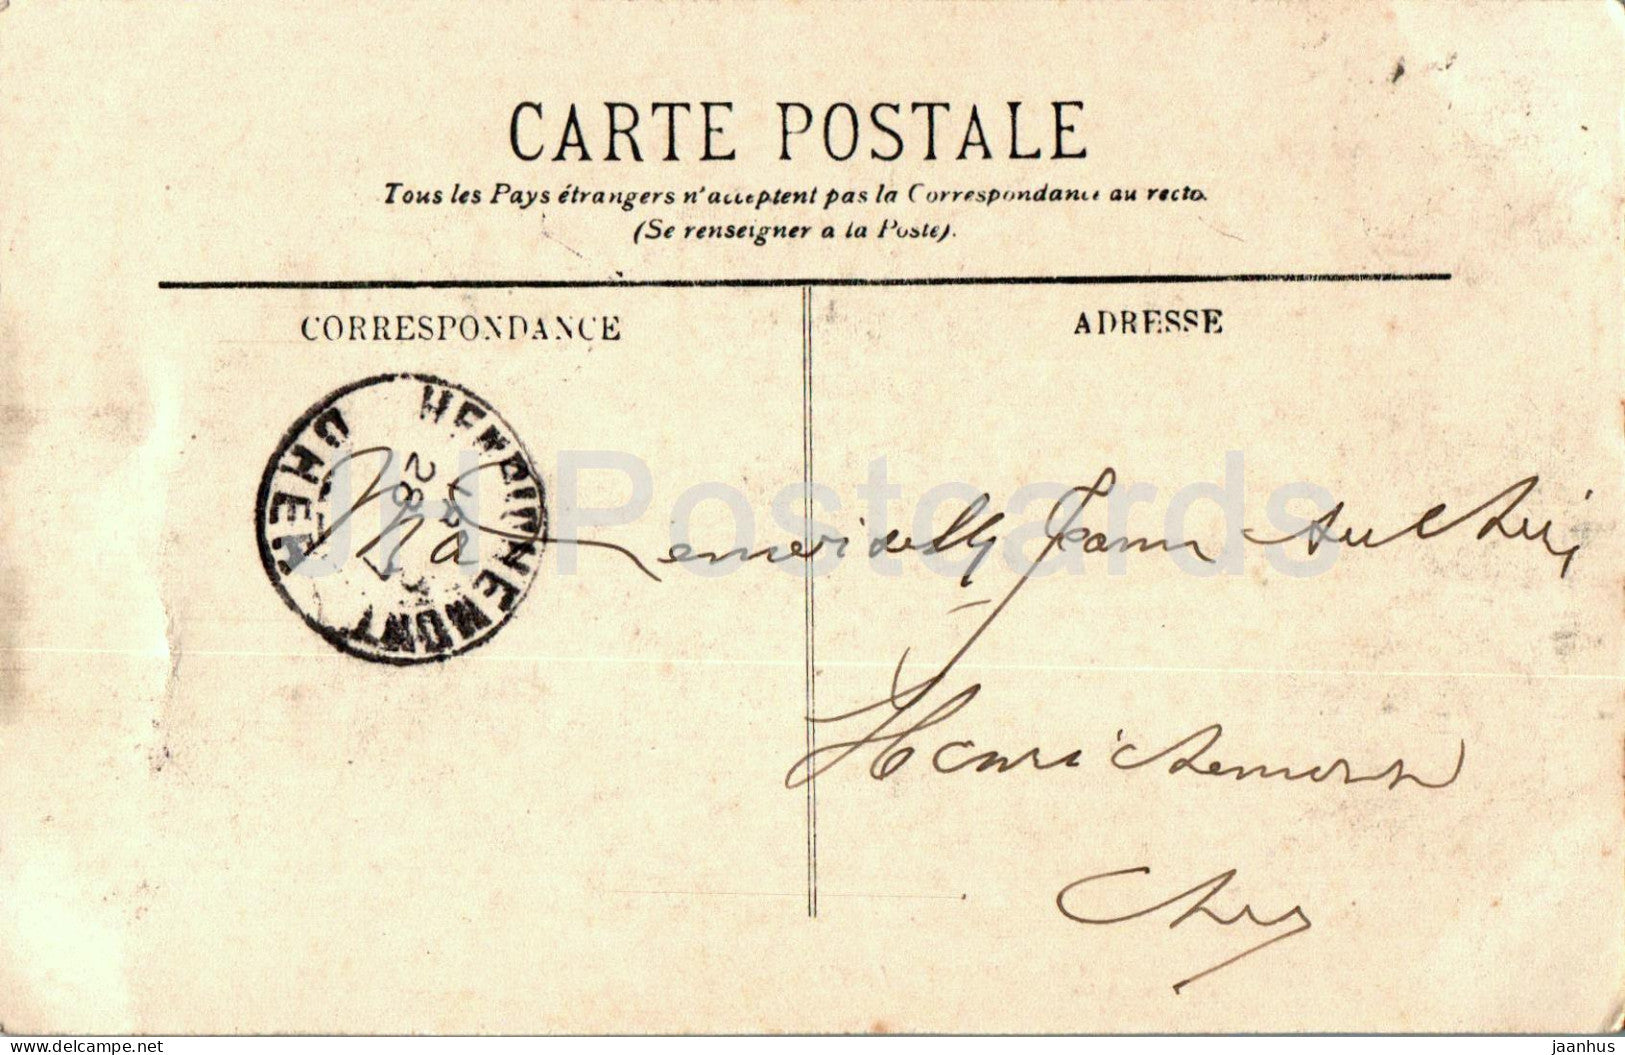 CARTE POSTALE
Tous les Pays étrangers n'acceptent pas la Correspondance au recto.
(Se renseigner a la Poste).
CORRESPONDANCE
ADRESSE
HENRICHEMONT
CHER
28
JH Postcards
Mademoiselle Jeanne
Henrichemont
Cher
www.delcampe.net
jaanhus